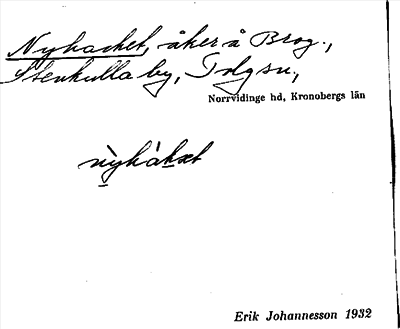 Nyhacket, åker å Brog.,
Stenkulla by, Tdgsn.,
Norrvidinge hd, Kronobergs län
nỳhàkət
Erik Johannesson 1932